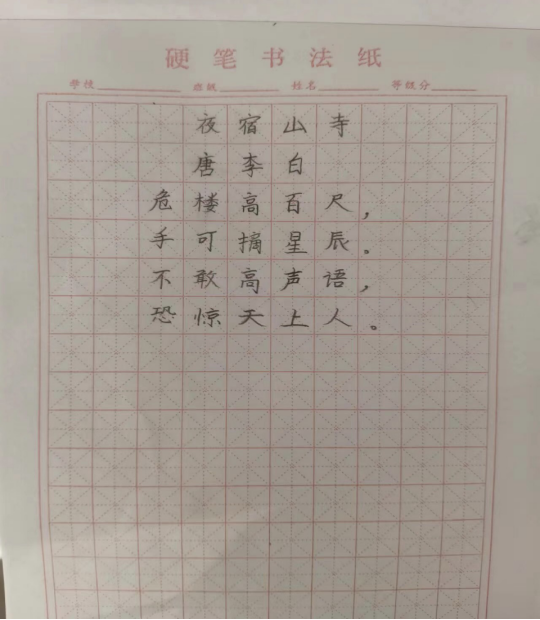 硬笔书法纸
学校 班级 姓名 等级分
夜宿山寺
唐李白
危楼高百尺，
手可摘星辰。
不敢高声语，
恐惊天上人。